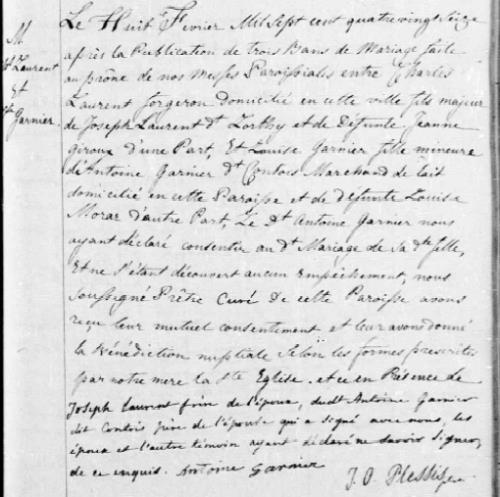 M
Laurent
&
Garnier.
Le Huit Fevrier Mil Sept cent quatre vingt Seize
après la Publication de trois Bans de Mariage faite
au prône de nos Messes Paroissiales entre Charles
Laurent forgeron domicilié en cette ville fils majeur
de Joseph Laurent dt Lorthy et de Défunte Jeanne
giroux d'une Part, Et Louise Garnier fille mineure
d'Antoine Garnier dt Contois Marchand de lait
domicilié en cette Paroisse et de défunte Louise
Morar d'autre Part, Le dt Antoine Garnier nous
ayant déclaré consentir au dt Mariage de Sa dte fille,
Et ne s'étant découvert aucun Empêchement, nous
Soussigné Prêtre Curé De cette Paroisse avons
reçu leur mutuel consentement et leur avons donné
la Bénédiction nuptiale Selon les formes prescrites
par notre mere la Ste Eglise. et ce en Présence de
Joseph Laurent frère de l'époux, dudt Antoine Garnier
dit Contois père de l'épouse qui a signé avec nous, les
époux et l'autre témoin ayant déclaré ne savoir signer
de ce enquis. Antoine Garnier
J. O. Plessis